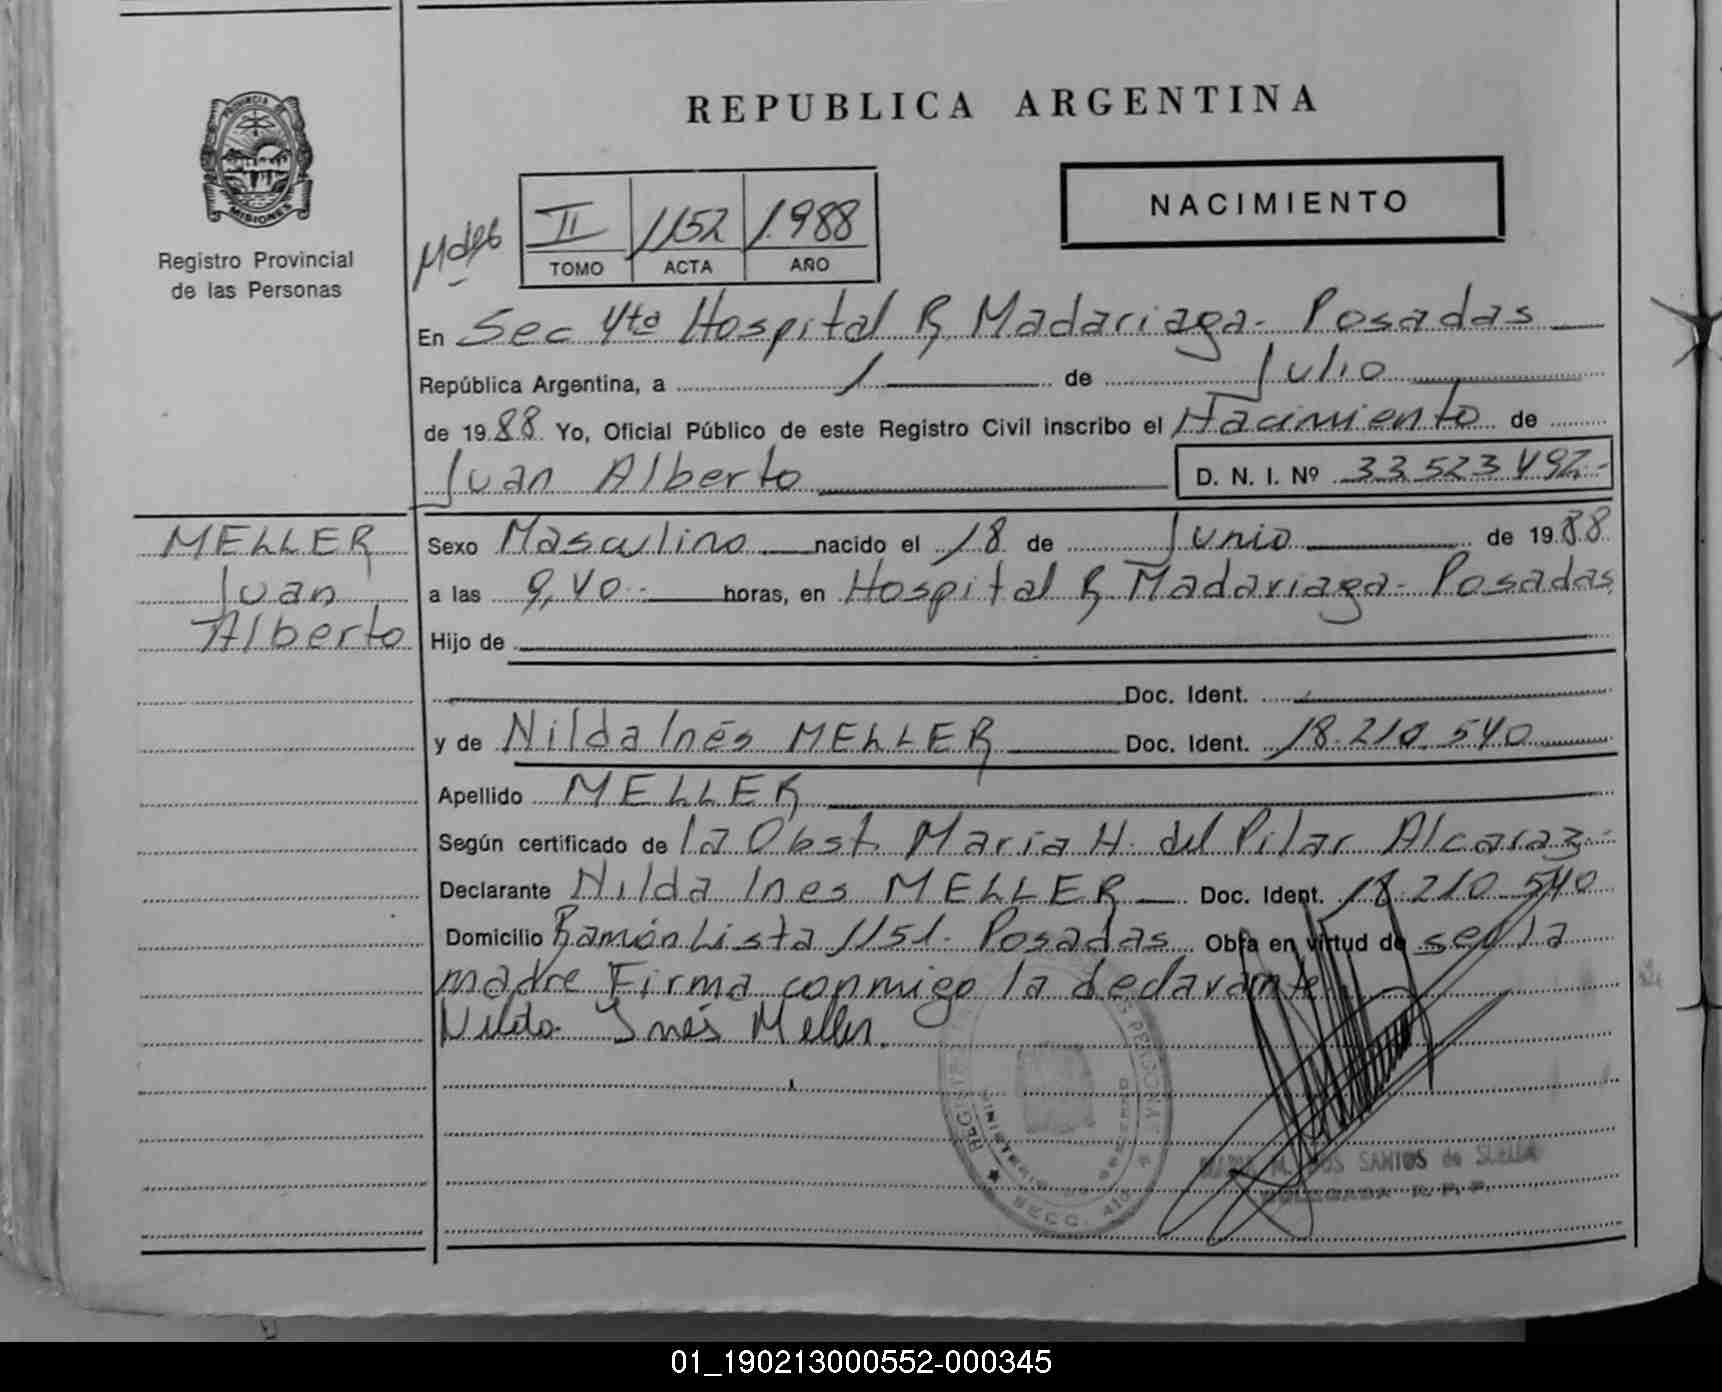 REPUBLICA ARGENTINA
PROVINCIA DE
MISIONES
Registro Provincial
de las Personas
II 1152 1988
TOMO ACTA AÑO
NACIMIENTO
En Sec 4ta Hospital R Madariaga - Posadas
República Argentina, a 1 de Julio
de 1988 Yo, Oficial Público de este Registro Civil inscribo el Nacimiento de
Juan Alberto D. N. I. Nº 33.523.492.-
MELLER
Juan
Alberto
Sexo Masculino nacido el 18 de Junio de 1988
a las 9,40.- horas, en Hospital R Madariaga - Posadas
Hijo de
Doc. Ident.
y de Nilda Inés MELLER Doc. Ident. 18.210.540
Apellido MELLER
Según certificado de la Obst. Maria H. del Pilar Alcaraz.-
Declarante Nilda Ines MELLER Doc. Ident. 18.210.540
Domicilio Ramón Lista 1151.- Posadas Obra en virtud de ser la
madre Firma conmigo la declarante
Nilda Inés Meller.
SANTOS de
R. P. P.
SECC.
01_190213000552-000345